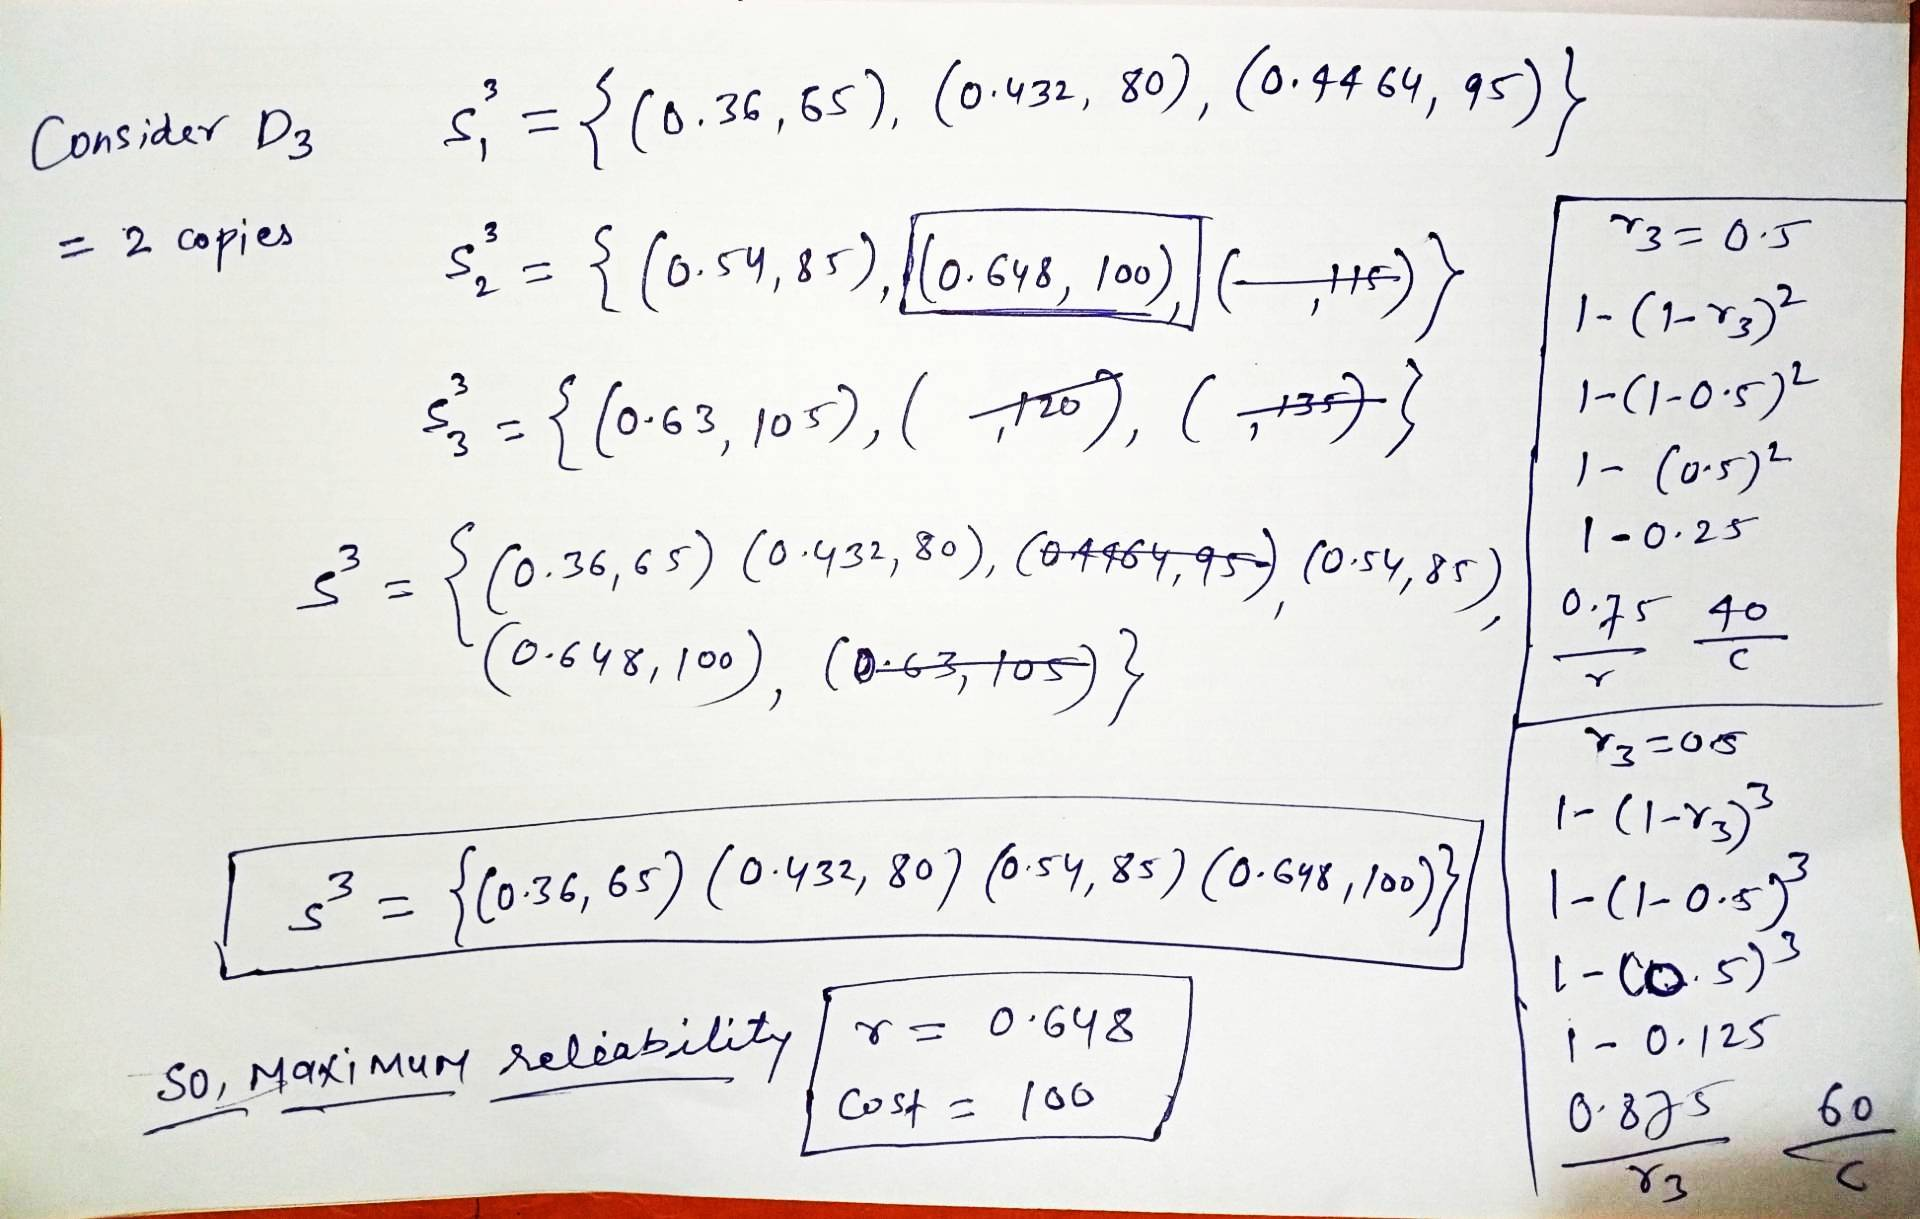 Consider D₃ S₁³ = {(0.36, 65), (0.432, 80), (0.4464, 95)}
= 2 copies S₂³ = {(0.54, 85), (0.648, 100), ( , 115)}
S₃³ = {(0.63, 105), ( , 120), ( , 135)}
S³ = {(0.36, 65) (0.432, 80), (0.4464, 95), (0.54, 85),
(0.648, 100), (0.63, 105)}
S³ = {(0.36, 65) (0.432, 80) (0.54, 85) (0.648, 100)}
So, Maximum reliability
r = 0.648
Cost = 100
r₃ = 0.5
1-(1-r₃)²
1-(1-0.5)²
1-(0.5)²
1-0.25
0.75 40
r c
r₃ = 0.5
1-(1-r₃)³
1-(1-0.5)³
1-(0.5)³
1-0.125
0.875 60
r₃ c